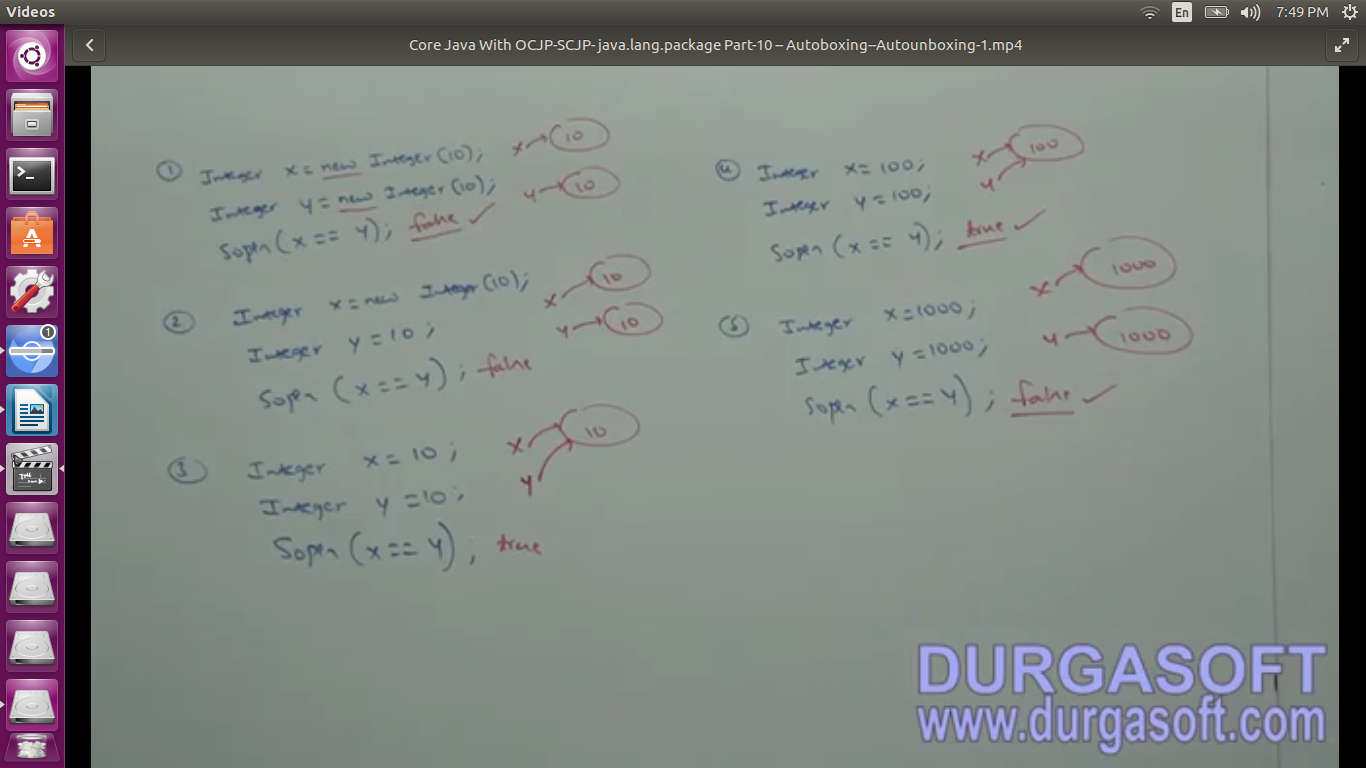 Videos
En
7:49 PM
Core Java With OCJP-SCJP- java.lang.package Part-10 – Autoboxing--Autounboxing-1.mp4
1
① Integer x = new Integer(10); x → 10
Integer y = new Integer(10); y → 10
Sopln (x == y); false ✓
② Integer x = new Integer(10); x → 10
Integer y = 10; y → 10
Sopln (x == y); false
③ Integer x = 10; x → 10
Integer y = 10; y
Sopln (x == y); true
④ Integer x = 100; x → 100
Integer y = 100; y
Sopln (x == y); true ✓
⑤ Integer x = 1000; x → 1000
Integer y = 1000; y → 1000
Sopln (x == y); false ✓
DURGASOFT
www.durgasoft.com